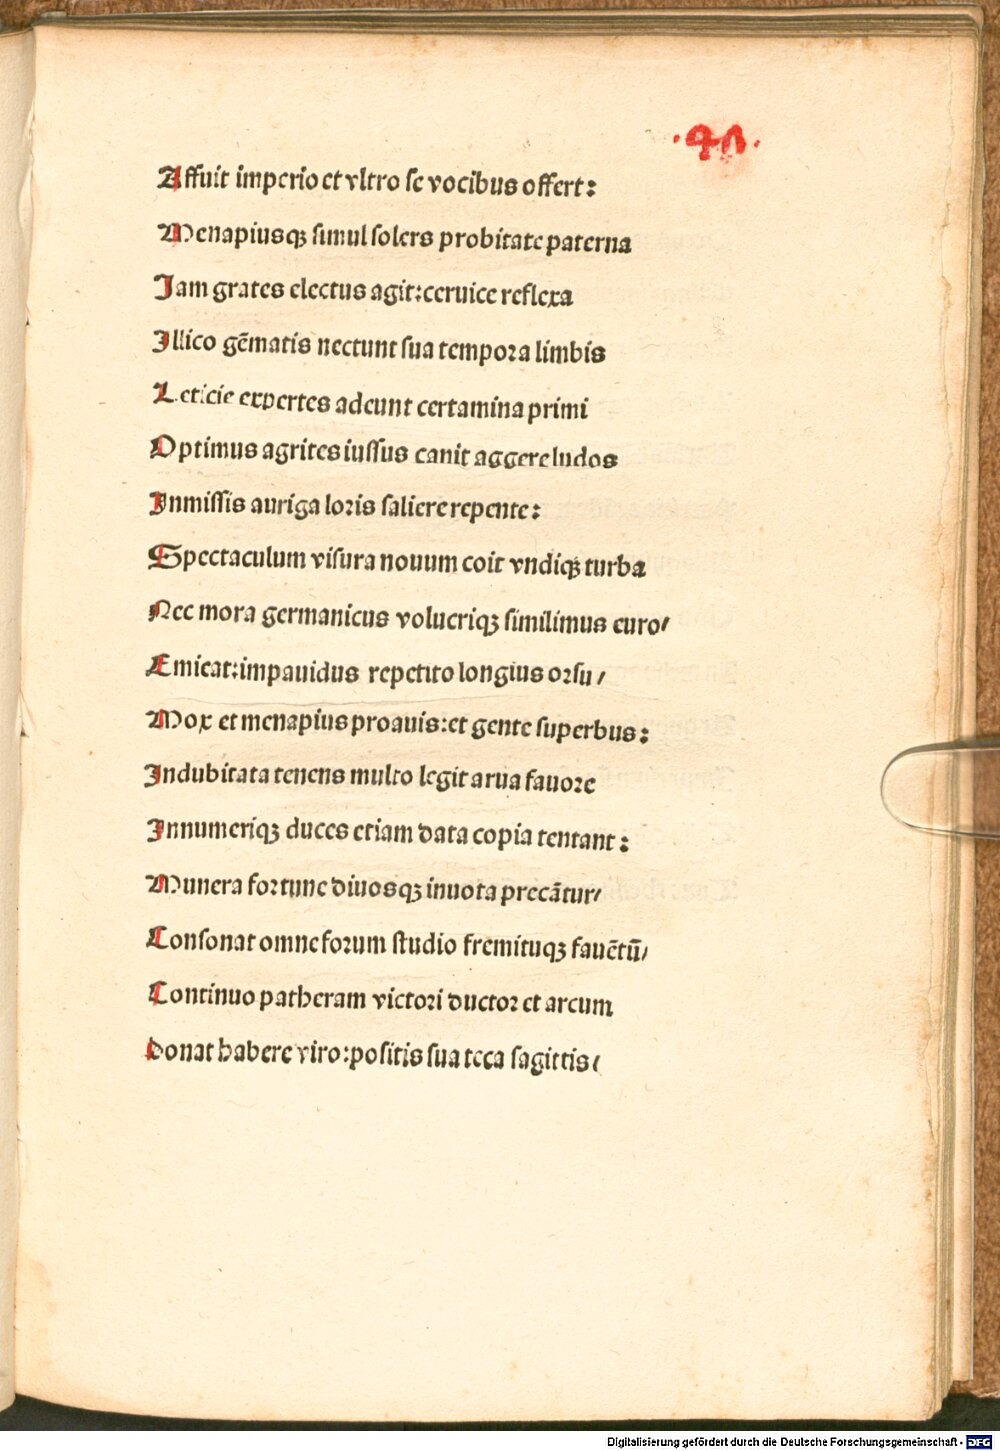 ·4Λ·
Affuit imperio et vltro se vocibus offert:
Menapiusqȝ simul solers probitate paterna
Jam grates electus agit:ceruice reflexa
Jllico gēmatis nectunt sua tempora limbis
Leticie expertes adeunt certamina primi
Optimus agrites iussus canit aggere ludos
Jnmissis auriga loris saliere repente:
Spectaculum visura nouum coit vndiqȝ turba
Nec mora germanicus volucriqȝ similimus euro/
Emicat:impauidus repetito longius orsu/
Mox et menapius proauis:et gente superbus:
Jndubitata tenens multo legit arua fauore
Jnnumeriqȝ duces etiam data copia tentant:
Munera fortune diuosqȝ inuota precātur/
Consonat omne forum studio fremituqȝ fauētū/
Continuo patheram victori ductor et arcum
donat habere viro:positis sua teca sagittis/
Digitalisierung gefördert durch die Deutsche Forschungsgemeinschaft - DFG